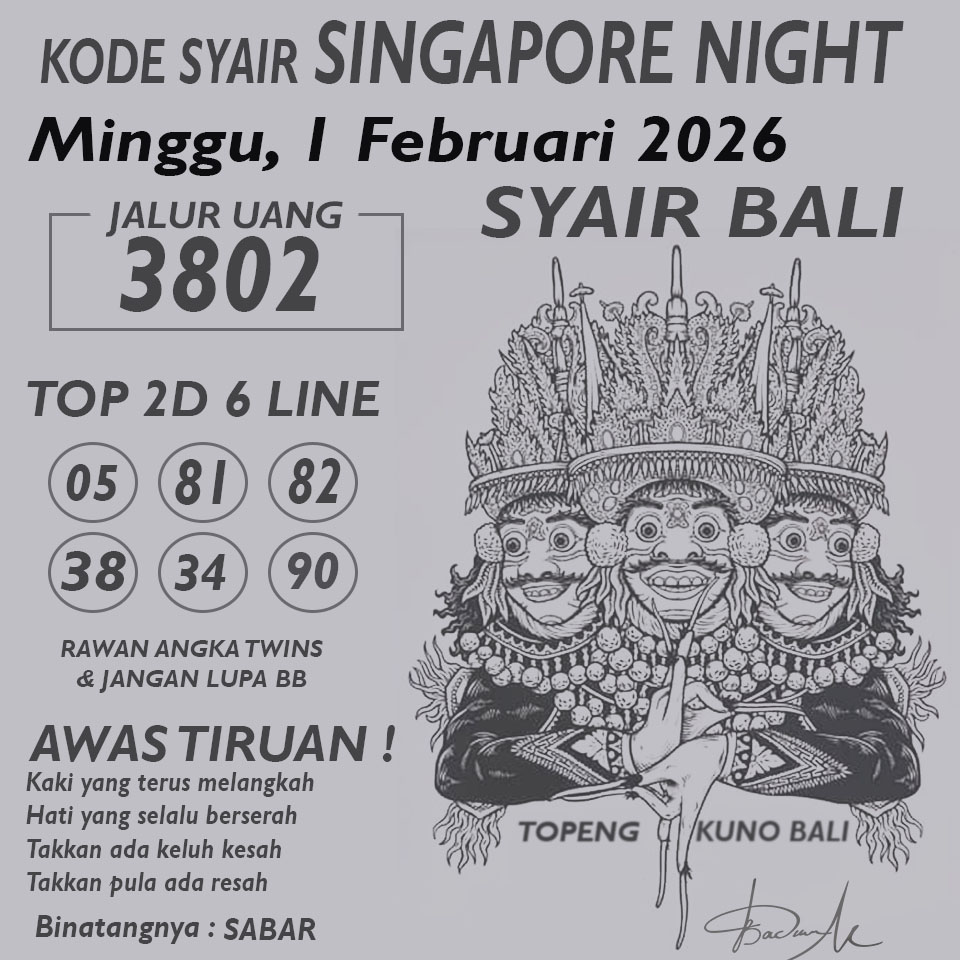 KODE SYAIR SINGAPORE NIGHT
Minggu, 1 Februari 2026
SYAIR BALI
JALUR UANG
3802
TOP 2D 6 LINE
05 81 82
38 34 90
RAWAN ANGKA TWINS
& JANGAN LUPA BB
AWAS TIRUAN !
Kaki yang terus melangkah
Hati yang selalu berserah
Takkan ada keluh kesah
Takkan pula ada resah
Binatangnya : SABAR
TOPENG KUNO BALI